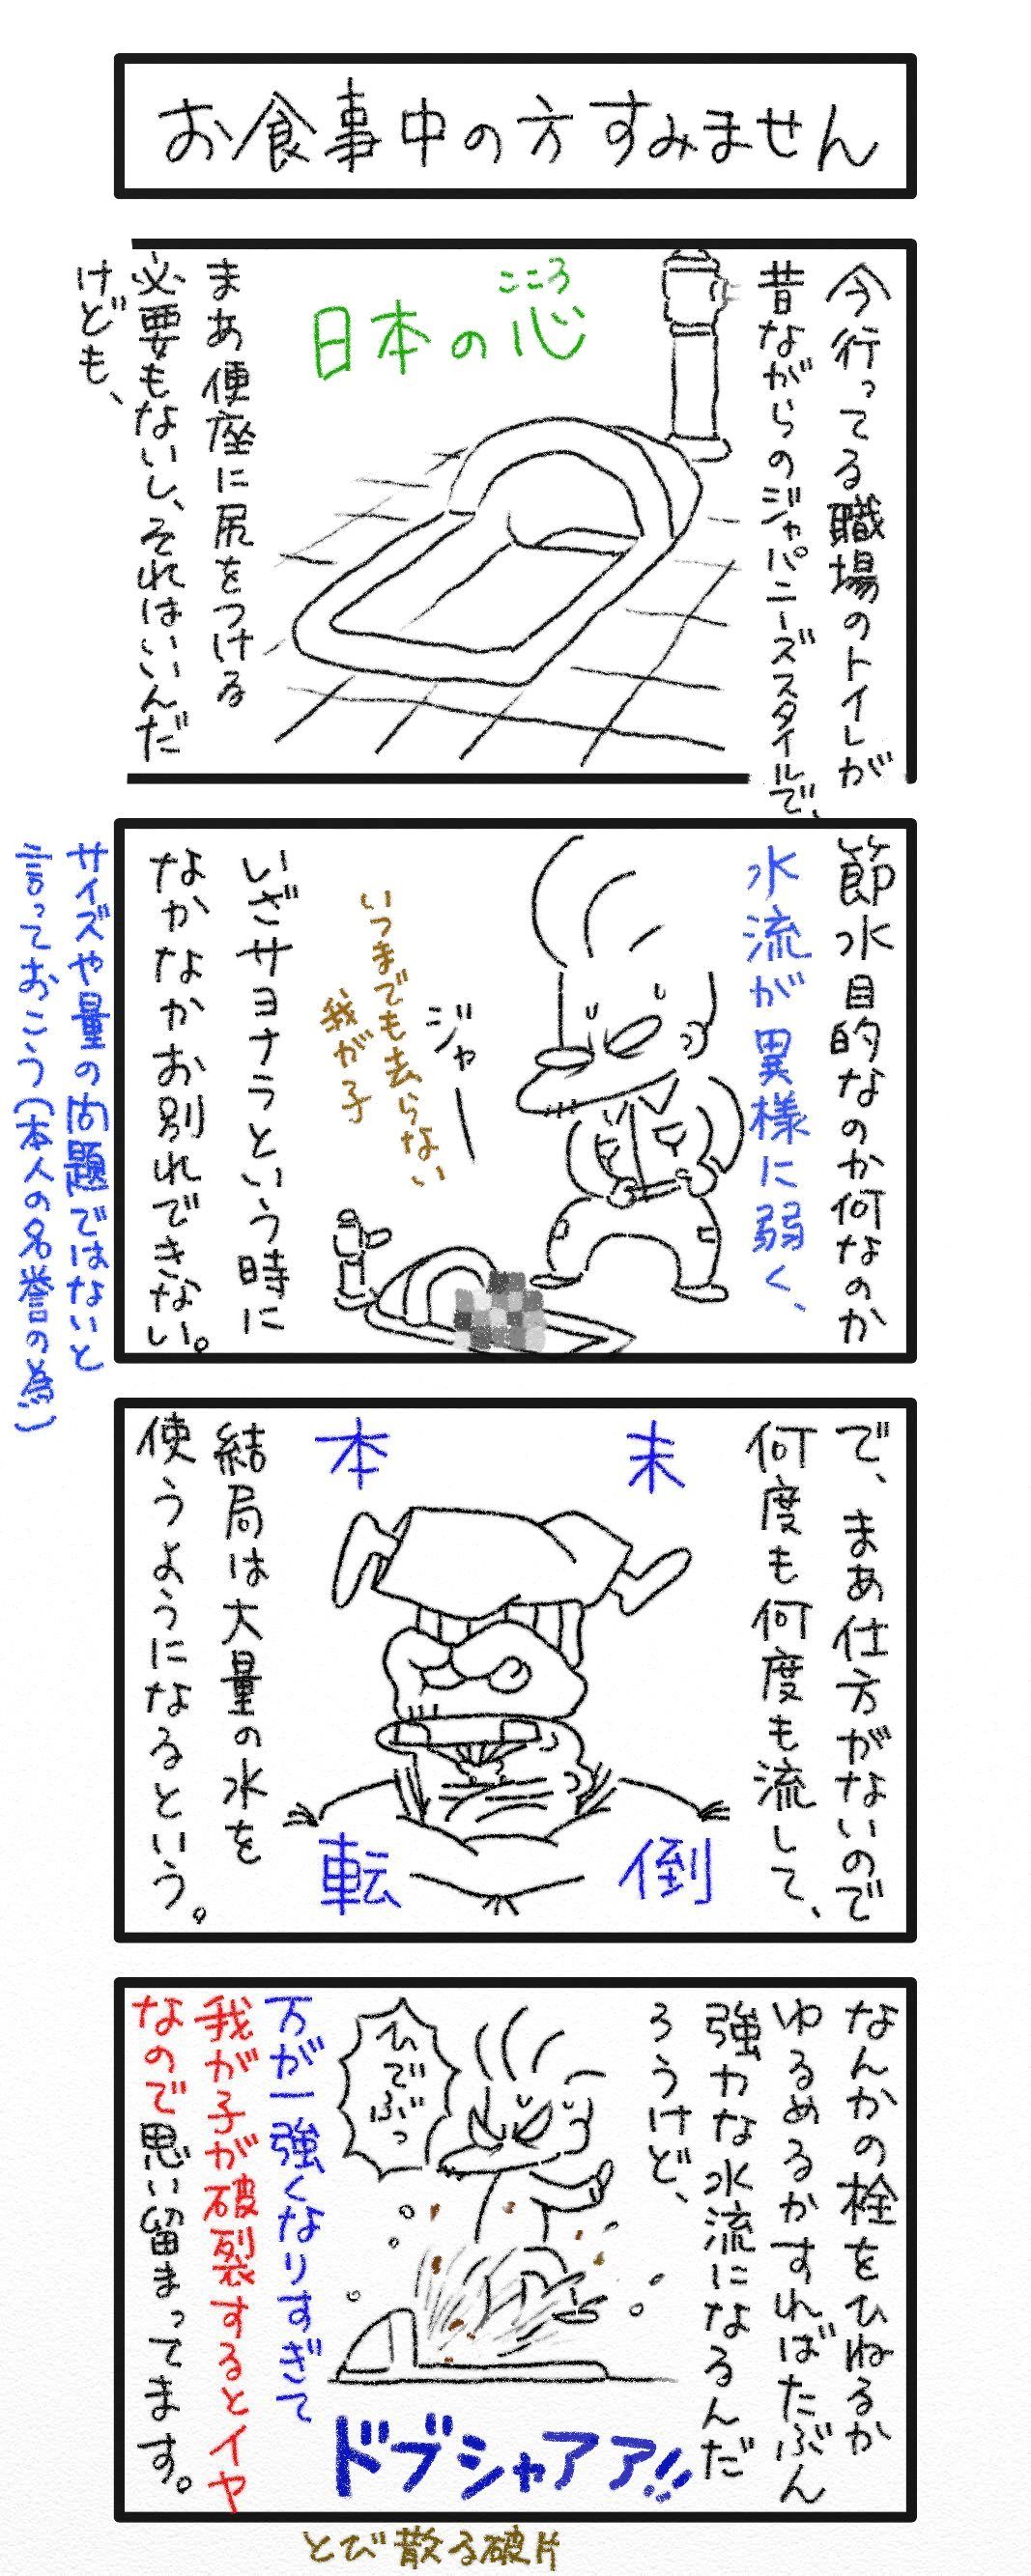 お食事中の方すみません
今行ってる職場のトイレが
昔ながらのジャパニーズスタイルで、
こころ
日本の心
まあ便座に尻をつける
必要もないし、それはいいんだ
けども、
節水目的なのか何なのか
水流が異様に弱く、
ジャー
いつまでも去らない
我が子
いざサヨナラという時に
なかなかお別れできない。
サイズや量の問題ではないと
言っておこう(本人の名誉の為)
で、まあ仕方がないので
何度も何度も流して、
本末
転倒
結局は大量の水を
使うようになるという。
なんかの栓をひねるか
ゆるめるかすればたぶん
強力な水流になるんだ
ろうけど、
ひでぶっ
ドブシャアア!!
万が一強くなりすぎて
我が子が破裂するとイヤ
なので思い留まってます。
とび散る破片